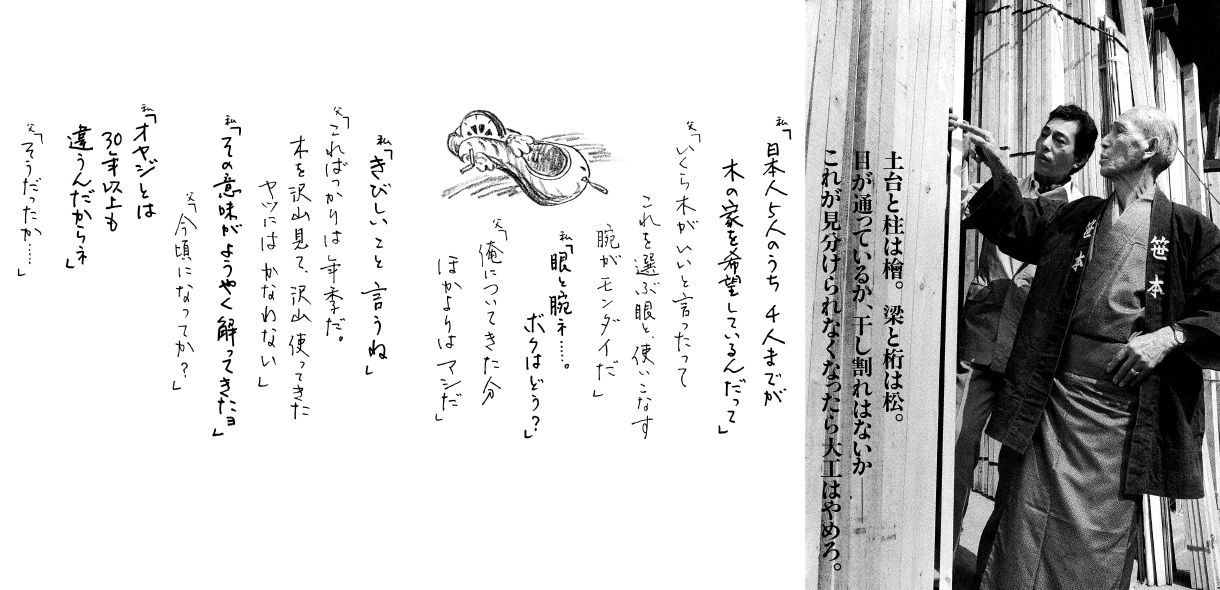 土台と柱は檜。梁と桁は松。
目が通っているか、干し割れはないか
これが見分けられなくなったら大工はやめろ。
笹本
笹本
私「日本人5人のうち4人までが
木の家を希望しているんだって」
父「いくら木がいいと言ったって
これを選ぶ眼と、使いこなす
腕がモンダイだ」
私「眼と腕ネ……。
ボクはどう?」
父「俺についてきた分
ほかよりはマシだ」
私「きびしいこと言うね」
父「こればっかりは年季だ。
木を沢山見て、沢山使ってきた
ヤツにはかなわない」
私「その意味がようやく解ってきたヨ」
父「今頃になってか?」
私「オヤジとは
30年以上も
違うんだからネ」
父「そうだったか……」